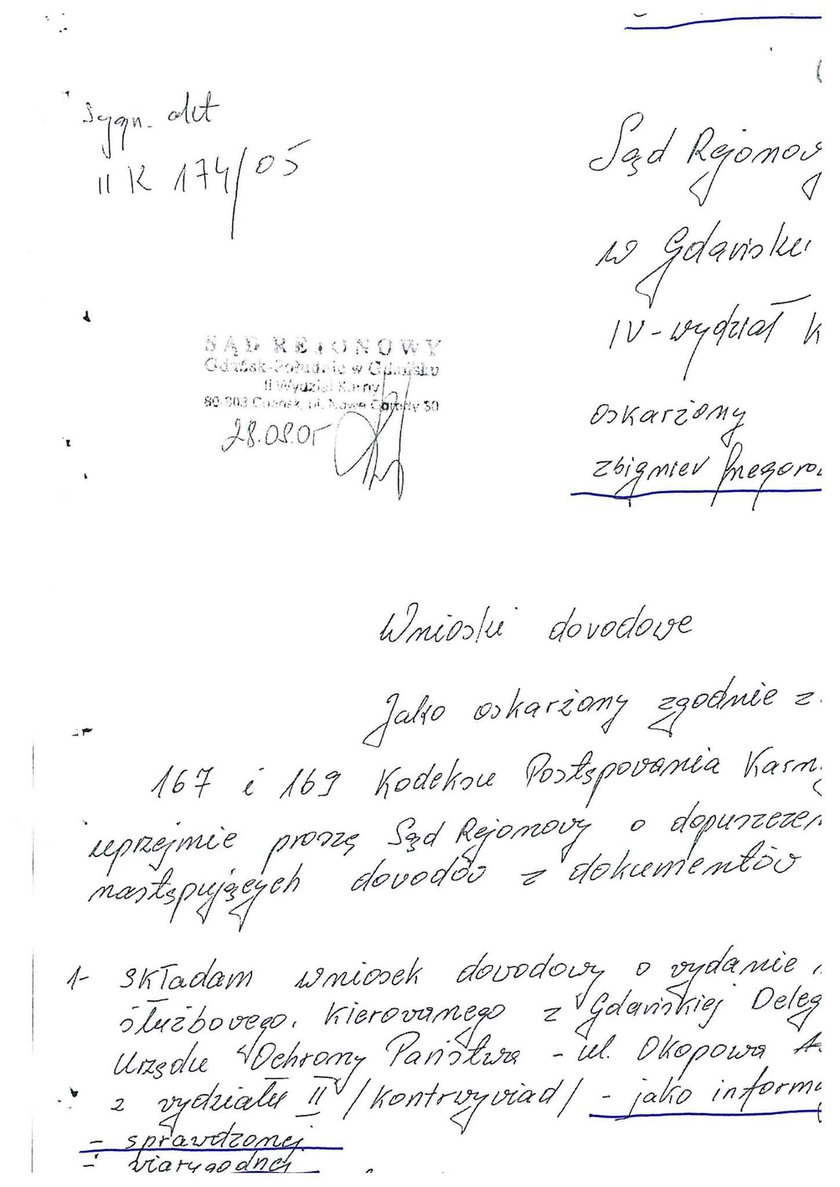 Sygn. akt
II K 174/05
Sąd Rejonow
w Gdańsku
IV-wydział K
SĄD REJONOWY
Gdańsk-Południe w Gdańsku
II Wydział Karny
80-803 Gdańsk, ul. Nowe Ogrody 30
28.09.05
oskarżony
Zbigniev
Wnioski dovodowe
Jako oskarżony zgodnie z
167 i 169 Kodeksu Postępovania Karn
uprzejmie proszę Sąd Rejonowy o dopuszczen
następujących dovodów z dokumentów
1- składam wniosek dovodowy o vydanie
służbovego. Kierovanego z Gdańskiej Deleg
Urzędu Ochrony Państwa - ul. Okopowa
z vydziału II /kontrwyviad/ - jako inform
- sprawdzonej
- viarygodnej